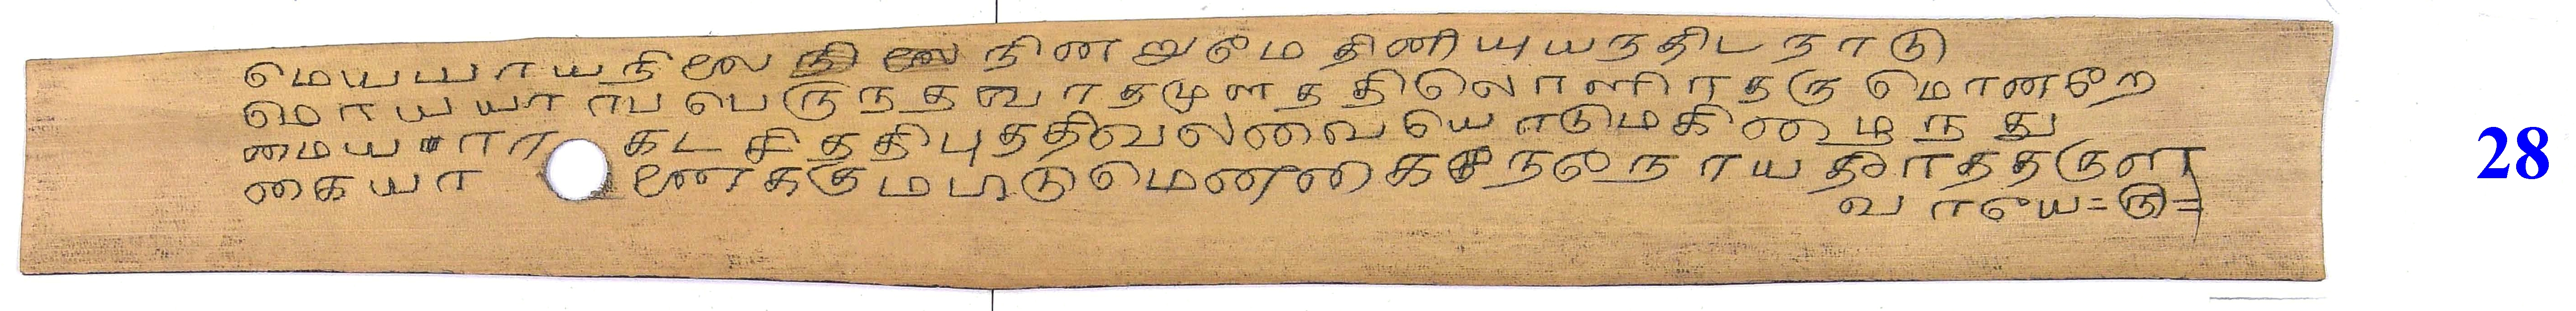 மெயயாயநிலை நிலை நினறுமேதினியுயநதிடநாடு
மொயயாரபபெருநதவாதமுளததிலொளிரதருமொணறே
மையாார கடசிததிபுததிவலலவையொடுமகிழைநது
கையா ணேககுமபடுமெணணிககநலநாயகிாததருள
வாயே=ரு=
28